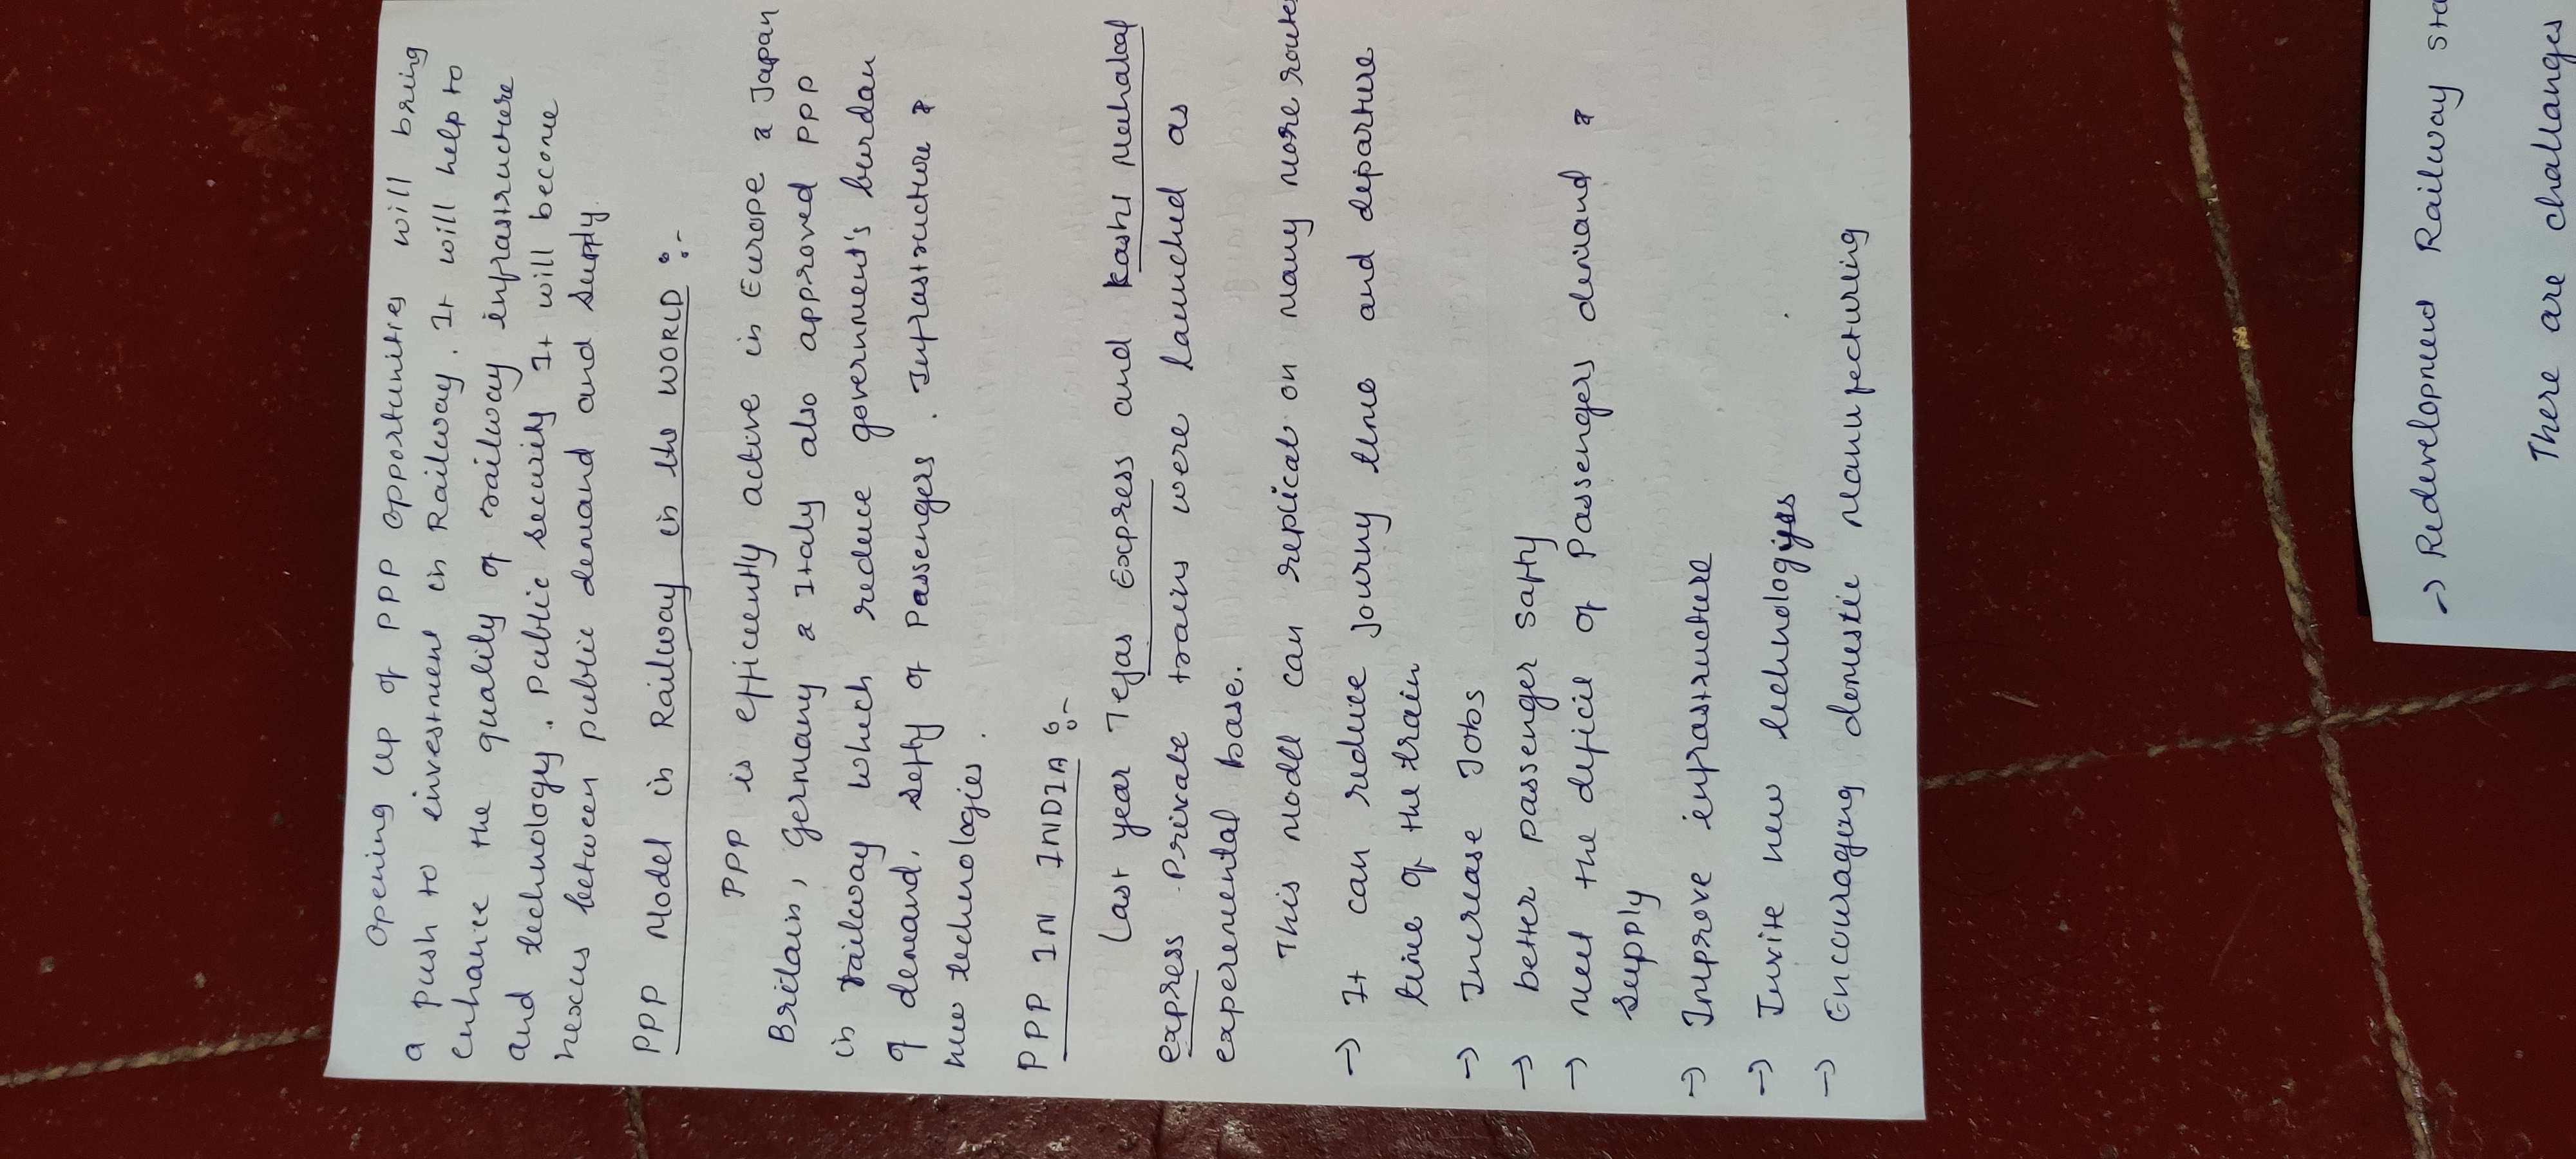 Opening up of PPP opportunities will bring
a push to investment in Railway. It will help to
enhance the quality of railway infrastructure
and technology. Public security It will become
nexus between public demand and supply.
PPP Model in Railway in the WORLD :-
PPP is efficiently active in Europe & Japan
Britain, Germany & Italy also approved PPP
in railway which reduce government's burdan
of demand, safty of Passengers. Infrastructure &
new technologies.
PPP IN INDIA :-
Last year Tejas Express and Kashi Mahakal
express private trains were launched as
experemental base.
This modle can replicate on many more route
→ It can reduce Journy time and departure
time of the train
→ Increase Jobs
→ better passenger safty
→ meet the deficit of Passengers demand &
supply
→ Improve infrastructure
→ Invite new technologys
→ Encouraging domestic manufecturing
→ Redevelopment Railway sta
There are challanges